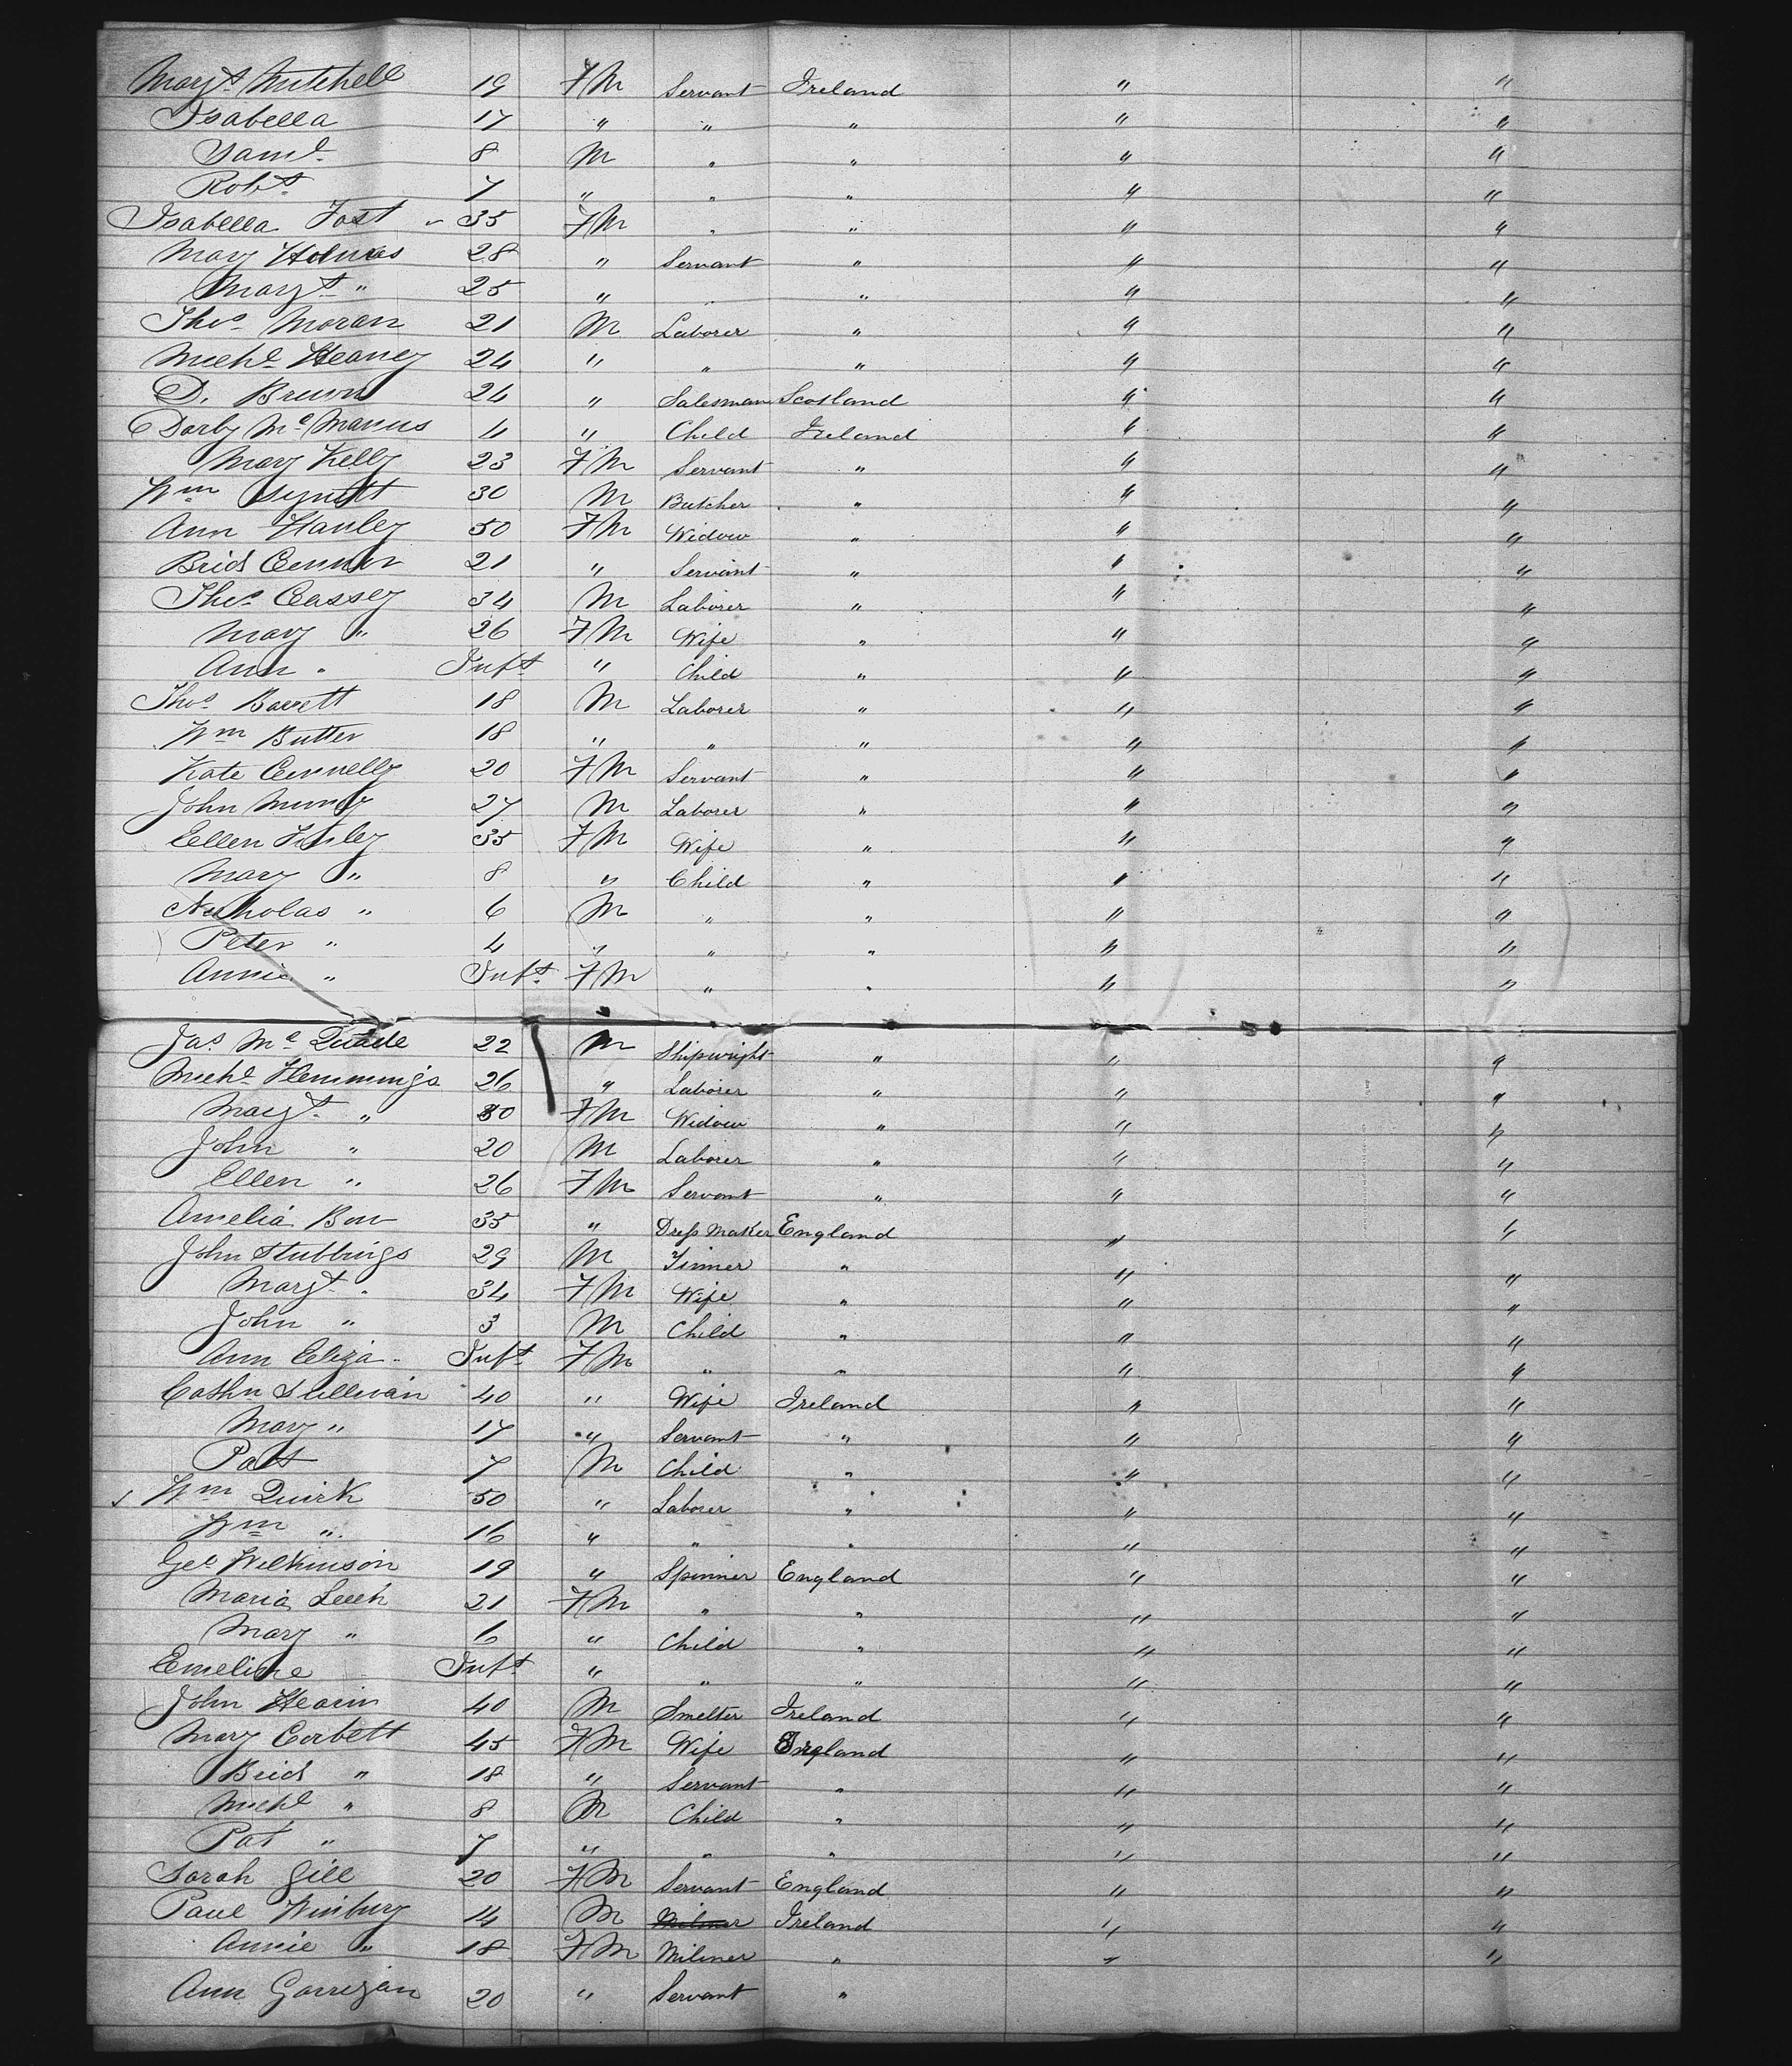 Margt Mitchell 19 FM Servant Ireland " "
Isabella 17 " " " " "
Saml 8 M " " " "
Robt 7 " " " " "
Isabella Fost " 35 FM " " " "
Mary Holmes 28 " Servant " " "
Margt " 25 " " " " "
Thos Moran 21 M Laborer " " "
Michl Heaney 24 " " " " "
D. Brown 24 " Salesman Scotland " "
Darby McManus 4 " Child Ireland " "
Mary Kelly 23 FM Servant " " "
Wm Synott 30 M Butcher " " "
Ann Hanley 50 FM Widow " " "
Brid Connor 21 " Servant " " "
Thos Cassey 34 M Laborer " " "
Mary " 26 FM Wife " " "
Ann " Inft " Child " " "
Thos Barrett 18 M Laborer " " "
Wm Butter 18 " " " " "
Kate Connelly 20 FM Servant " " "
John 27 M Laborer " " "
Ellen 35 FM Wife " " "
Mary " 8 " Child " " "
Nicholas " 6 M " " " "
Peter " 4 " " " " "
Annie " Inft FM " " " "
Jas Mc Quade 22 M Shipwright " " "
Michl Hemmings 26 " Laborer " " "
Margt " 50 FM Widow " " "
John " 20 M Laborer " " "
Ellen " 26 FM Servant " " "
Amelia 35 " Dress Maker England " "
John Stubbings 29 M Tinner " " "
Margt " 34 FM Wife " " "
John " 3 M Child " " "
Ann Eliza " Inft FM " " " "
Cathn Sullivan 40 " Wife Ireland " "
Mary " 17 " Servant " " "
Patt 7 M Child " " "
Wm Quirk 50 " Laborer " " "
Wm " 16 " " " " "
Geo Wilkinson 19 " Spinner England " "
Maria Leech 21 FM " " " "
Mary " 6 " Child " " "
Emeline Inft " " " " "
John Hearin 40 M Smelter Ireland " "
Mary Corbett 45 FM Wife England " "
Brid " 18 " Servant " " "
Michl " 8 M Child " " "
Pat " 7 " " " " "
Sarah Gill 20 FM Servant England " "
Paul Winbury 14 M Milner Ireland " "
Annie " 18 FM Milner " " "
Ann Garrigan 20 " Servant "